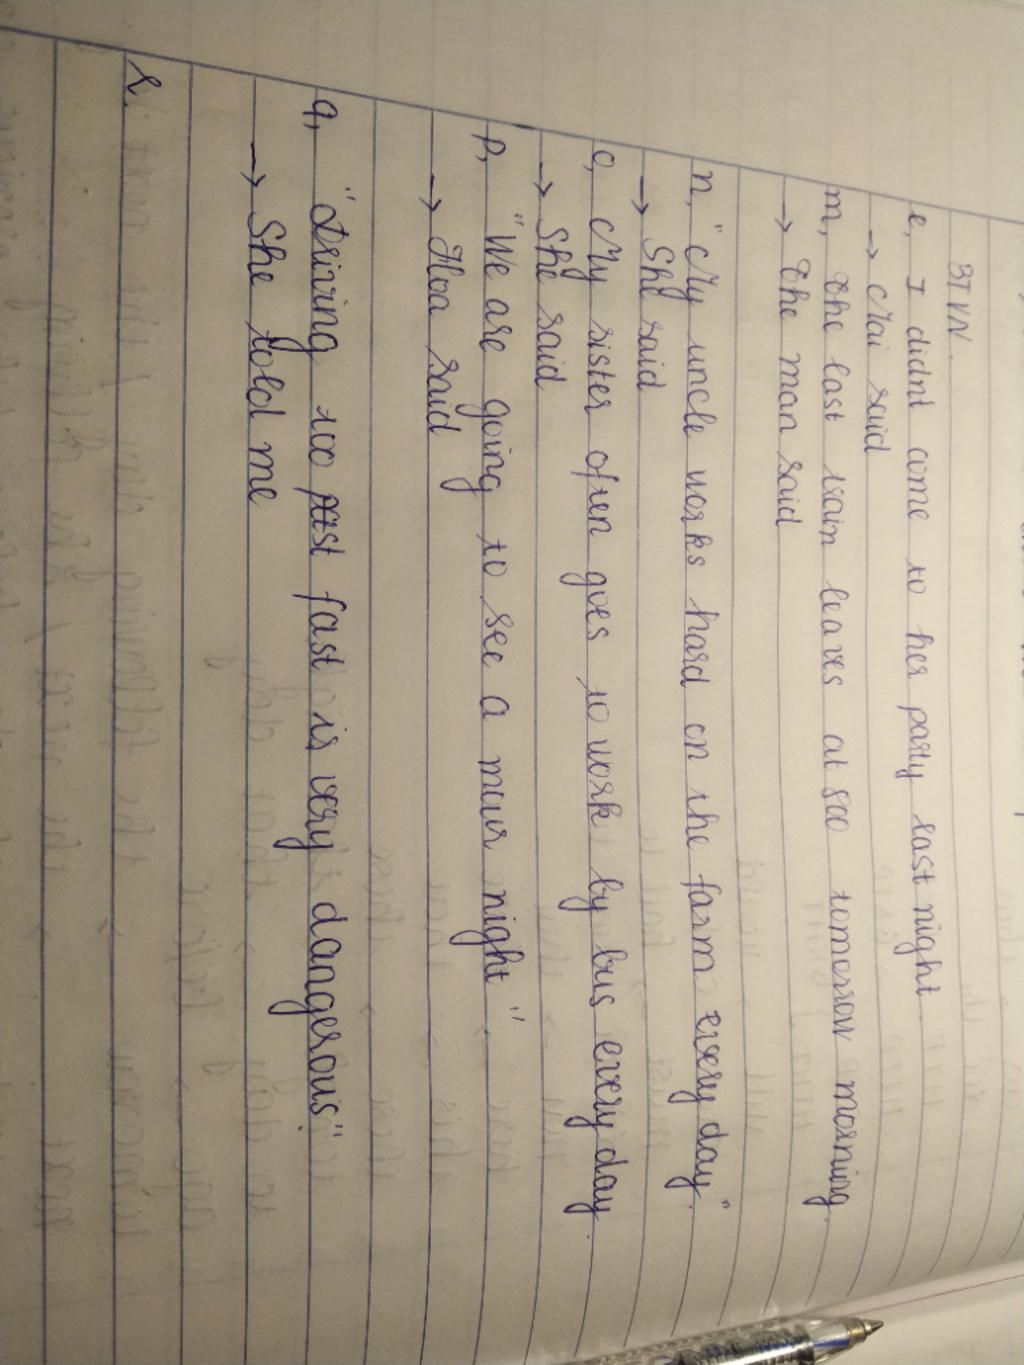 BTVN.
e, I didn't come to her party last night.
→ Mai said
m, The last train leaves at 800 tomorrow morning.
→ The man said
n, "My uncle works hard on the farm every day".
→ She said
o, My sister often goes to work by bus every day.
→ She said
p, "We are going to see a night".
→ Hoa said
q, "Driving too fast is very dangerous".
→ She told me
2.